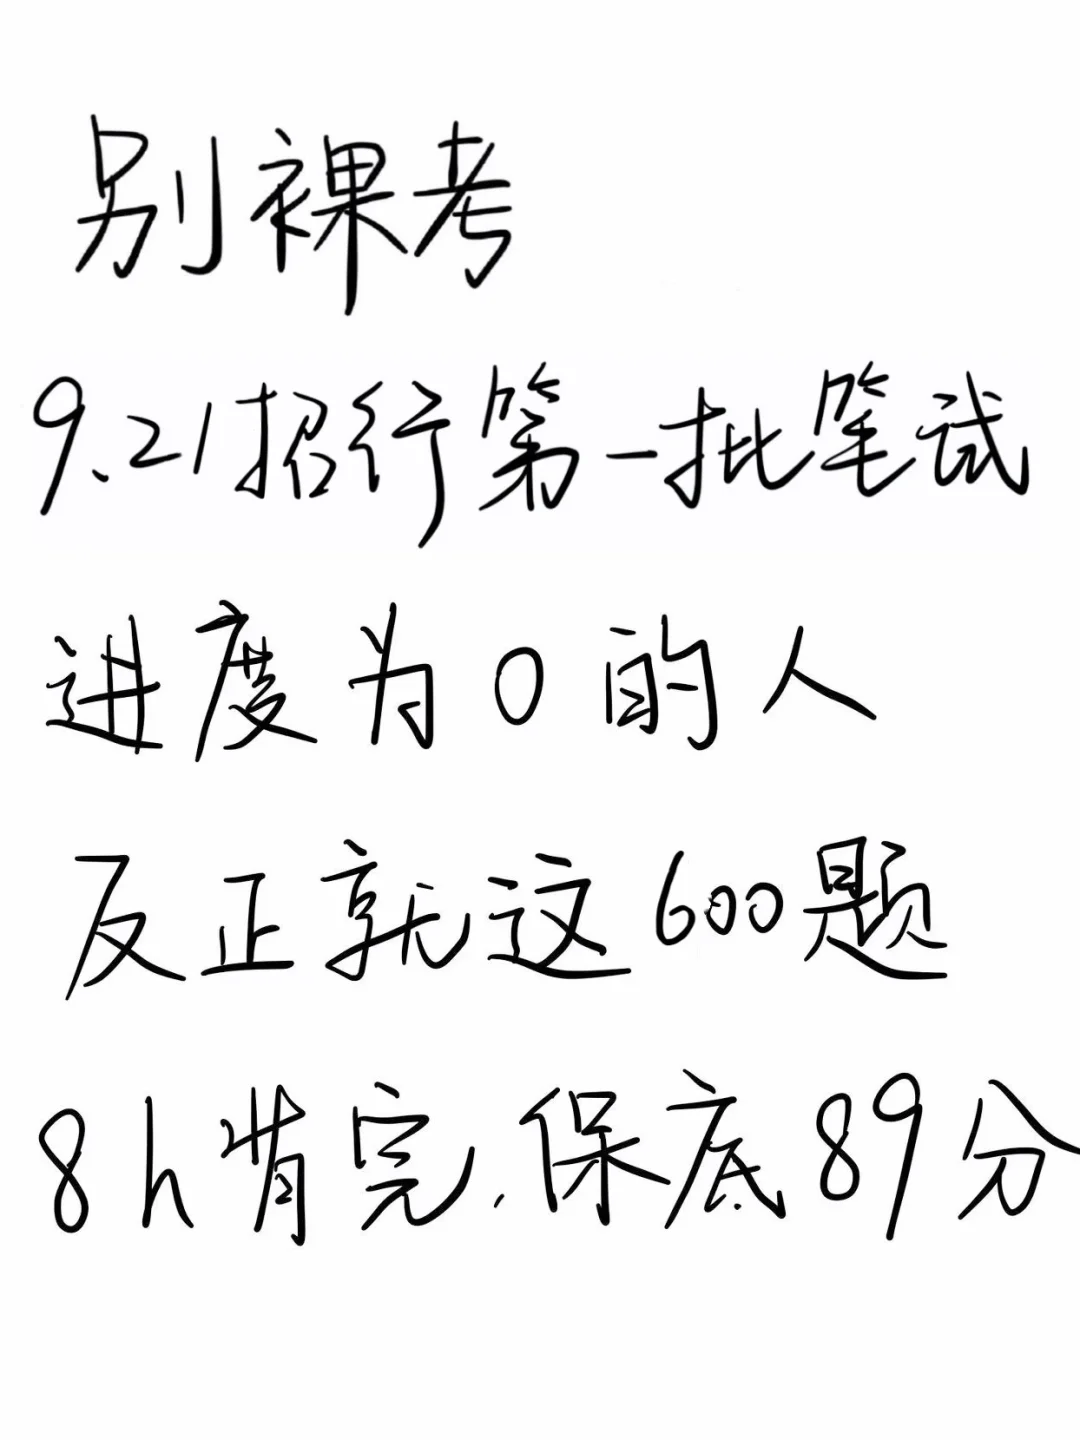 别裸考
9.21招行第一批笔试
进度为0的人
反正就这600题
8h背完,保底89分